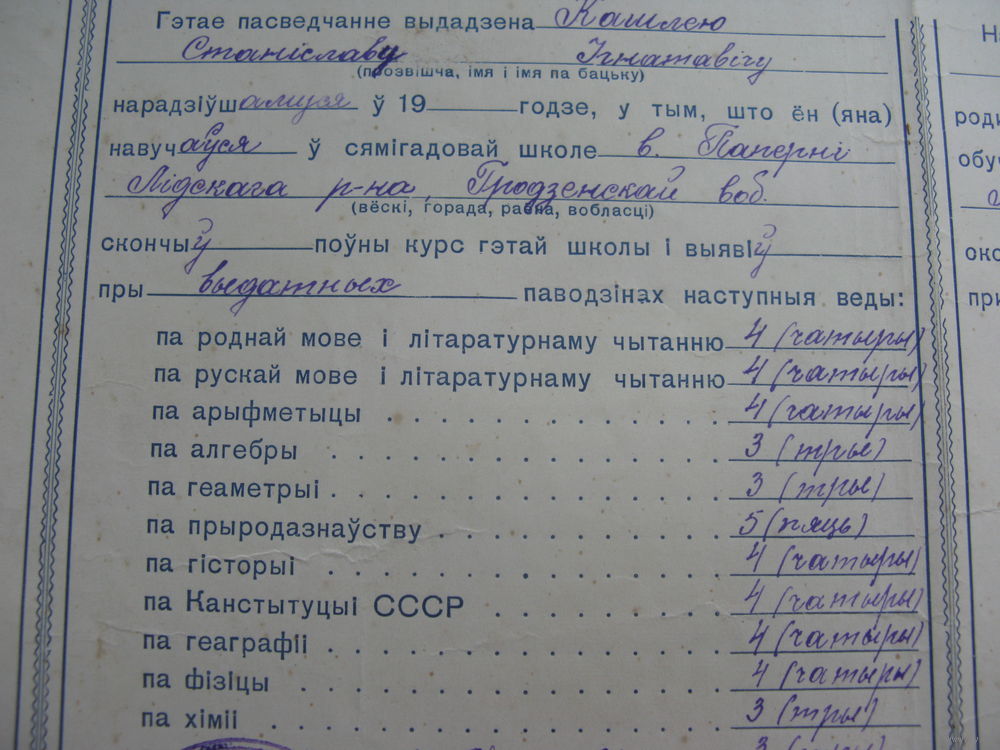 Гэтае пасведчанне выдадзена Кашлею
Станіславу Ігнатавічу
(прозвішча, імя і імя па бацьку)
нарадзіўшамуся ў 19 годзе, у тым, што ён (яна)
навучаўся ў сямігадовай школе в. Паперні
Лідскага р-на, Гродзенскай воб.
(вёскі, горада, раёна, вобласці)
скончыў поўны курс гэтай школы і выявіў
пры выдатных паводзінах наступныя веды:
па роднай мове і літаратурнаму чытанню 4 (чатыры)
па рускай мове і літаратурнаму чытанню 4 (чатыры)
па арыфметыцы . . . . . . . . . . . . . 4 (чатыры)
па алгебры . . . . . . . . . . . . . . . 3 (тры)
па геаметрыі . . . . . . . . . . . . . . 3 (тры)
па прыродазнаўству . . . . . . . . . . 5 (пяць)
па гісторыі . . . . . . . . . . . . . . . 4 (чатыры)
па Канстытуцыі СССР . . . . . . . . . 4 (чатыры)
па геаграфіі . . . . . . . . . . . . . . . 4 (чатыры)
па фізіцы . . . . . . . . . . . . . . . . 4 (чатыры)
па хіміі . . . . . . . . . . . . . . . . . 3 (тры)
На
роди
обуч
око
при